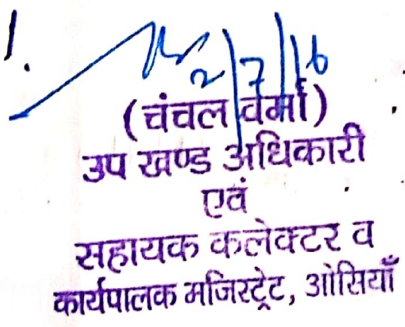 1.
2/7/16
(चंचल वर्मा)
उप खण्ड अधिकारी
एवं
सहायक कलेक्टर व
कार्यपालक मजिस्ट्रेट, ओसियाँ